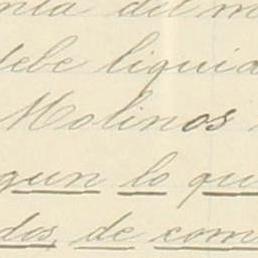 del
debe liquid
Molinos
gun lo qu
dos de com